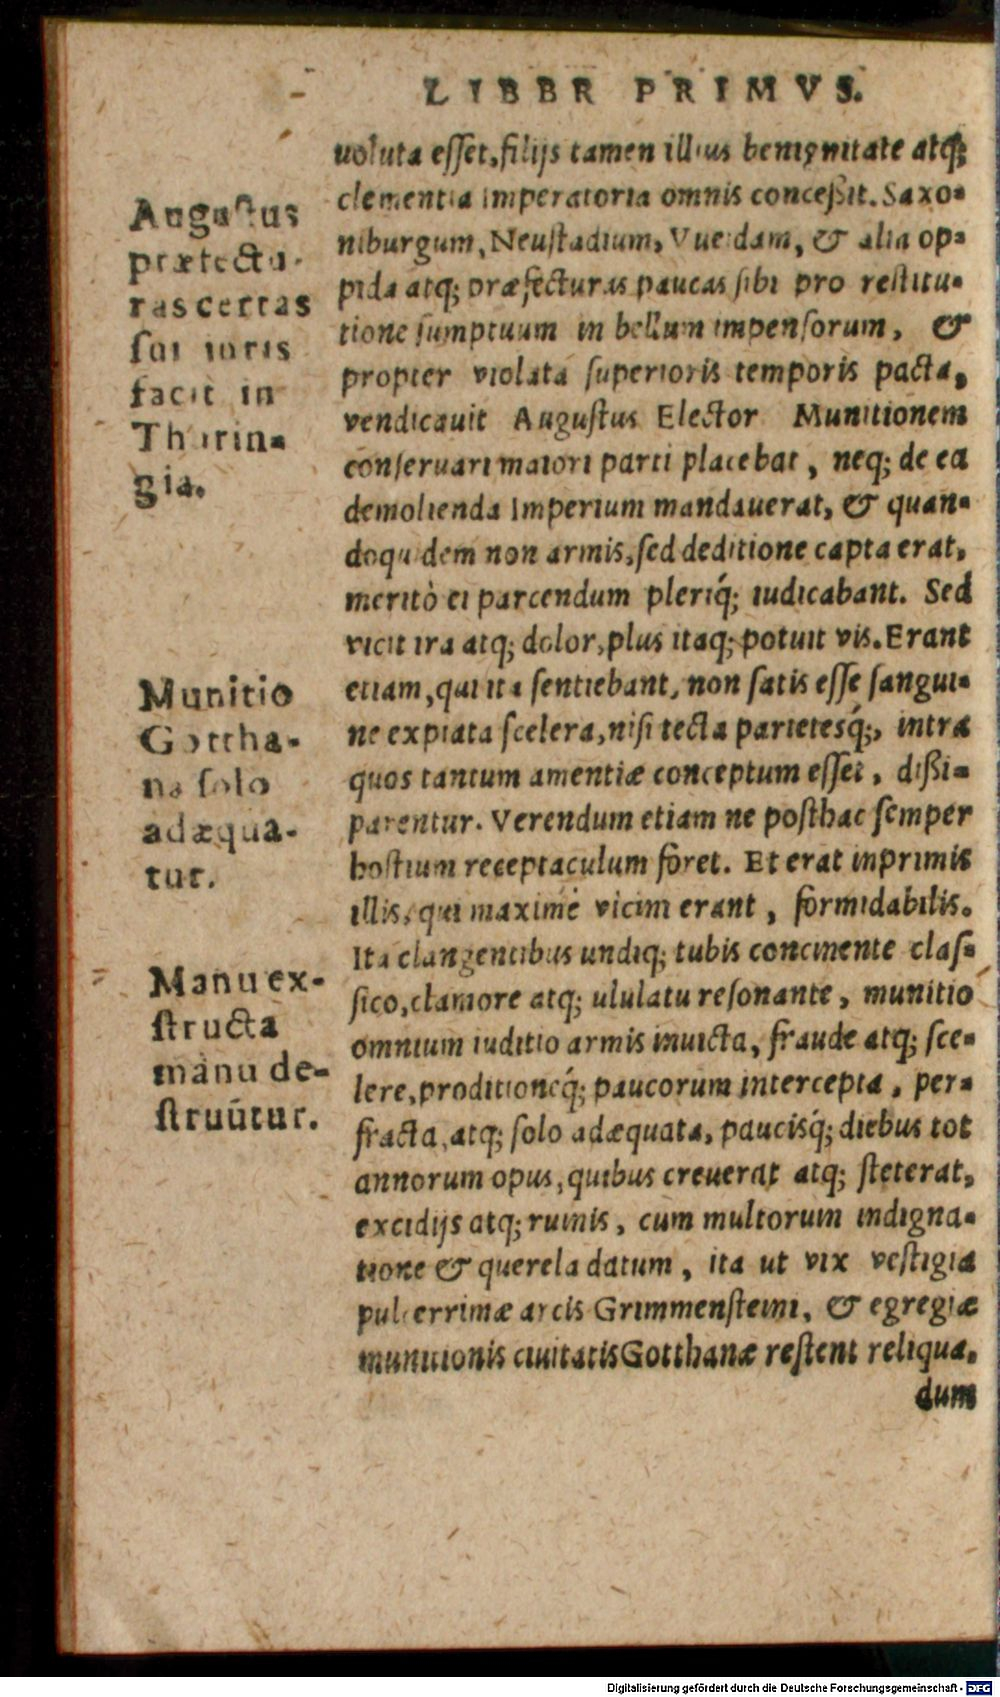 LIBER PRIMVS.
uoluta esset, filijs tamen illius benignitate atq;
clementia imperatoria omnis conceßit. Saxo-
niburgum, Neustadium, Vueidam, & alia op-
pida atq; præfecturas paucas sibi pro restitu-
tione sumptuum in bellum impensorum, &
propter violata superioris temporis pacta,
vendicauit Augustus Elector Munitionem
conseruari maiori parti placebat, neq; de ea
demolienda Imperium mandauerat, & quan-
doquidem non armis, sed deditione capta erat,
meritò ei parcendum pleriq́; iudicabant. Sed
vicit ira atq; dolor, plus itaq; potuit vis. Erant
etiam, qui ita sentiebant, non satis esse sangui-
ne expiata scelera, nisi tecta parietesq́;, intra
quos tantum amentiæ conceptum esset, dißi-
parentur. Verendum etiam ne posthac semper
hostium receptaculum foret. Et erat inprimis
illis, qui maximè vicini erant, formidabilis.
Ita clangentibus undiq; tubis concinente clas-
sico, clamore atq; ululatu resonante, munitio
omnium iuditio armis inuicta, fraude atq; sce-
lere, proditioneq́; paucorum intercepta, per-
fracta, atq; solo adæquata, paucisq́; diebus tot
annorum opus, quibus creuerat atq; steterat,
excidijs atq; ruinis, cum multorum indigna-
tione & querela datum, ita ut vix vestigia
pulcerrimæ arcis Grimmensteini, & egregiæ
munitionis ciuitatis Gotthanæ restent reliqua,
dum
Augustus
præfectu-
ras certas
sui iuris
facit in
Thurin-
gia.
Munitio
Gottha-
na solo
adæqua-
tur.
Manu ex-
structa
manu de-
struūtur.
Digitalisierung gefördert durch die Deutsche Forschungsgemeinschaft - DFG